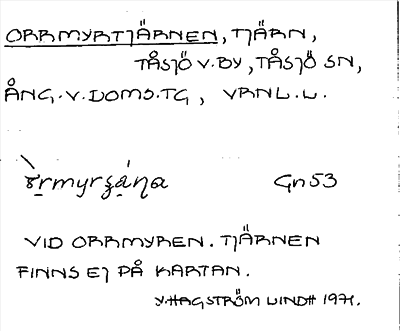 ORRMYRTJÄRNEN, TJÄRN,
TÅSJÖ V.BY, TÅSJÖ SN,
ÅNG.V.DOMS.TG, VRNL.L.
Gn 53
VID ORRMYREN. TJÄRNEN
FINNS EJ PÅ KARTAN.
Y.HAGSTRÖM LINDH 1971.